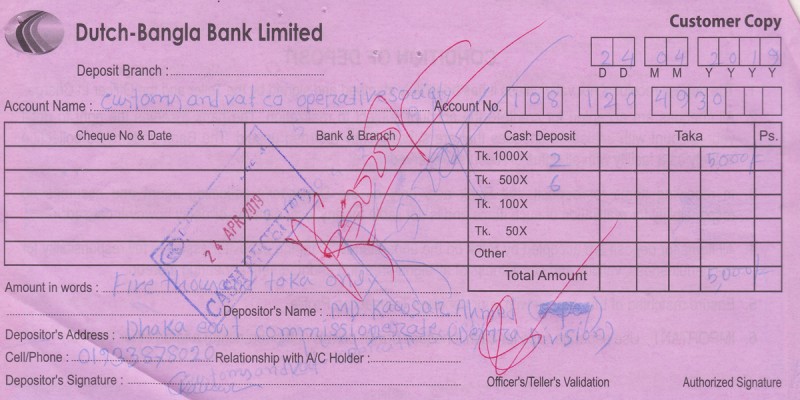 Customer Copy
Dutch-Bangla Bank Limited
24 04 2019
D D M M Y Y Y Y
Deposit Branch :
Account Name : Customs and vat co operative society Account No. 108 120 4930
Cheque No & Date Bank & Branch Cash Deposit Taka Ps.
Tk. 1000X 2 5000/-
Tk. 500X 6
Tk. 100X
Tk. 50X
Other
24 APR 2019
Total Amount 5,000/-
Amount in words : Five thousand taka only
Depositor's Name : MD. Kawsar Ahmed
Depositor's Address : Dhaka east commissionerate (Demra Division)
Cell/Phone : 01933878020 Relationship with A/C Holder :
Depositor's Signature : Officer's/Teller's Validation Authorized Signature